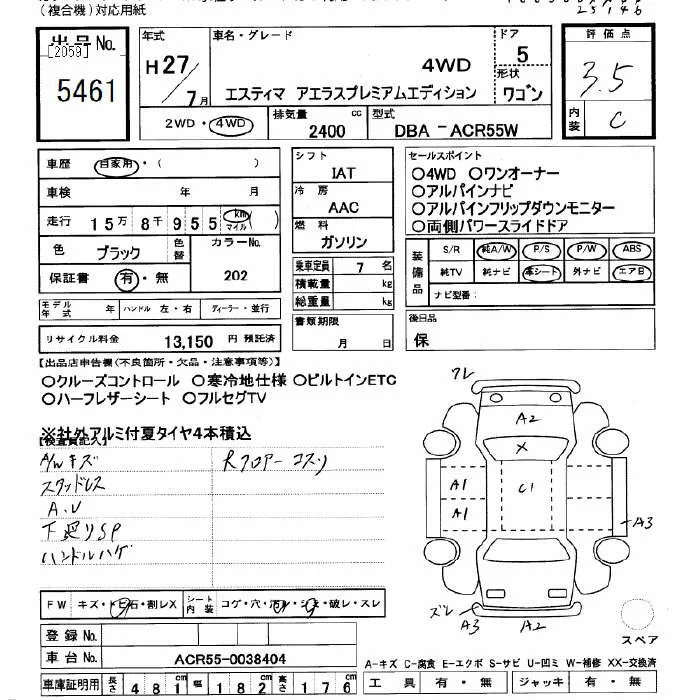 (複合機)対応用紙
25146
出品No.
[2059]
5461
年式
H27/7月
車名・グレード
4WD
エスティマ アエラスプレミアムエディション
ドア
5
形状
ワゴン
評価点
3.5
内装
C
2WD・4WD
排気量
2400 cc
型式
DBA-ACR55W
車歴 自家用・( )
車検 年 月
走行 15万8千955 km マイル ( )
色 ブラック 色替
カラーNo. 202
保証書 有・無
モデル年式 年 ハンドル 左・右 ディーラー・並行
リサイクル料金 13,150 円 預託済
シフト
IAT
冷房
AAC
燃料
ガソリン
乗車定員 7 名
積載量 kg
総重量 kg
書類期限
月 日
セールスポイント
○4WD ○ワンオーナー
○アルパインナビ
○アルパインフリップダウンモニター
○両側パワースライドドア
装備品
S/R 純A/W P/S P/W ABS
純TV 純ナビ 革シート 外ナビ エアB
ナビ型番:
後日品
保
【出品店申告欄(不良箇所・欠品・注意事項等)】
○クルーズコントロール ○寒冷地仕様 ○ビルトインETC
○ハーフレザーシート ○フルセグTV
※社外アルミ付夏タイヤ4本積込
【検査員記入】
A/Wキズ
Rフロアーコスリ
スタッドレス
A.U
下廻りSP
ハンドルハゲ
ワレ
A2
X
A1
C1
A1
A3
ズレ
A3
A2
スペア
FW キズ・トビ石・割レX シート内装 コゲ・穴・汚レ・シミ・破レ・スレ
登録No.
車台No. ACR55-0038404
車庫証明用 長さ 481 幅 182 高さ 176
A-キズ C-腐食 E-エクボ S-サビ U-凹ミ W-補修 XX-交換済
工具 有・無 ジャッキ 有・無